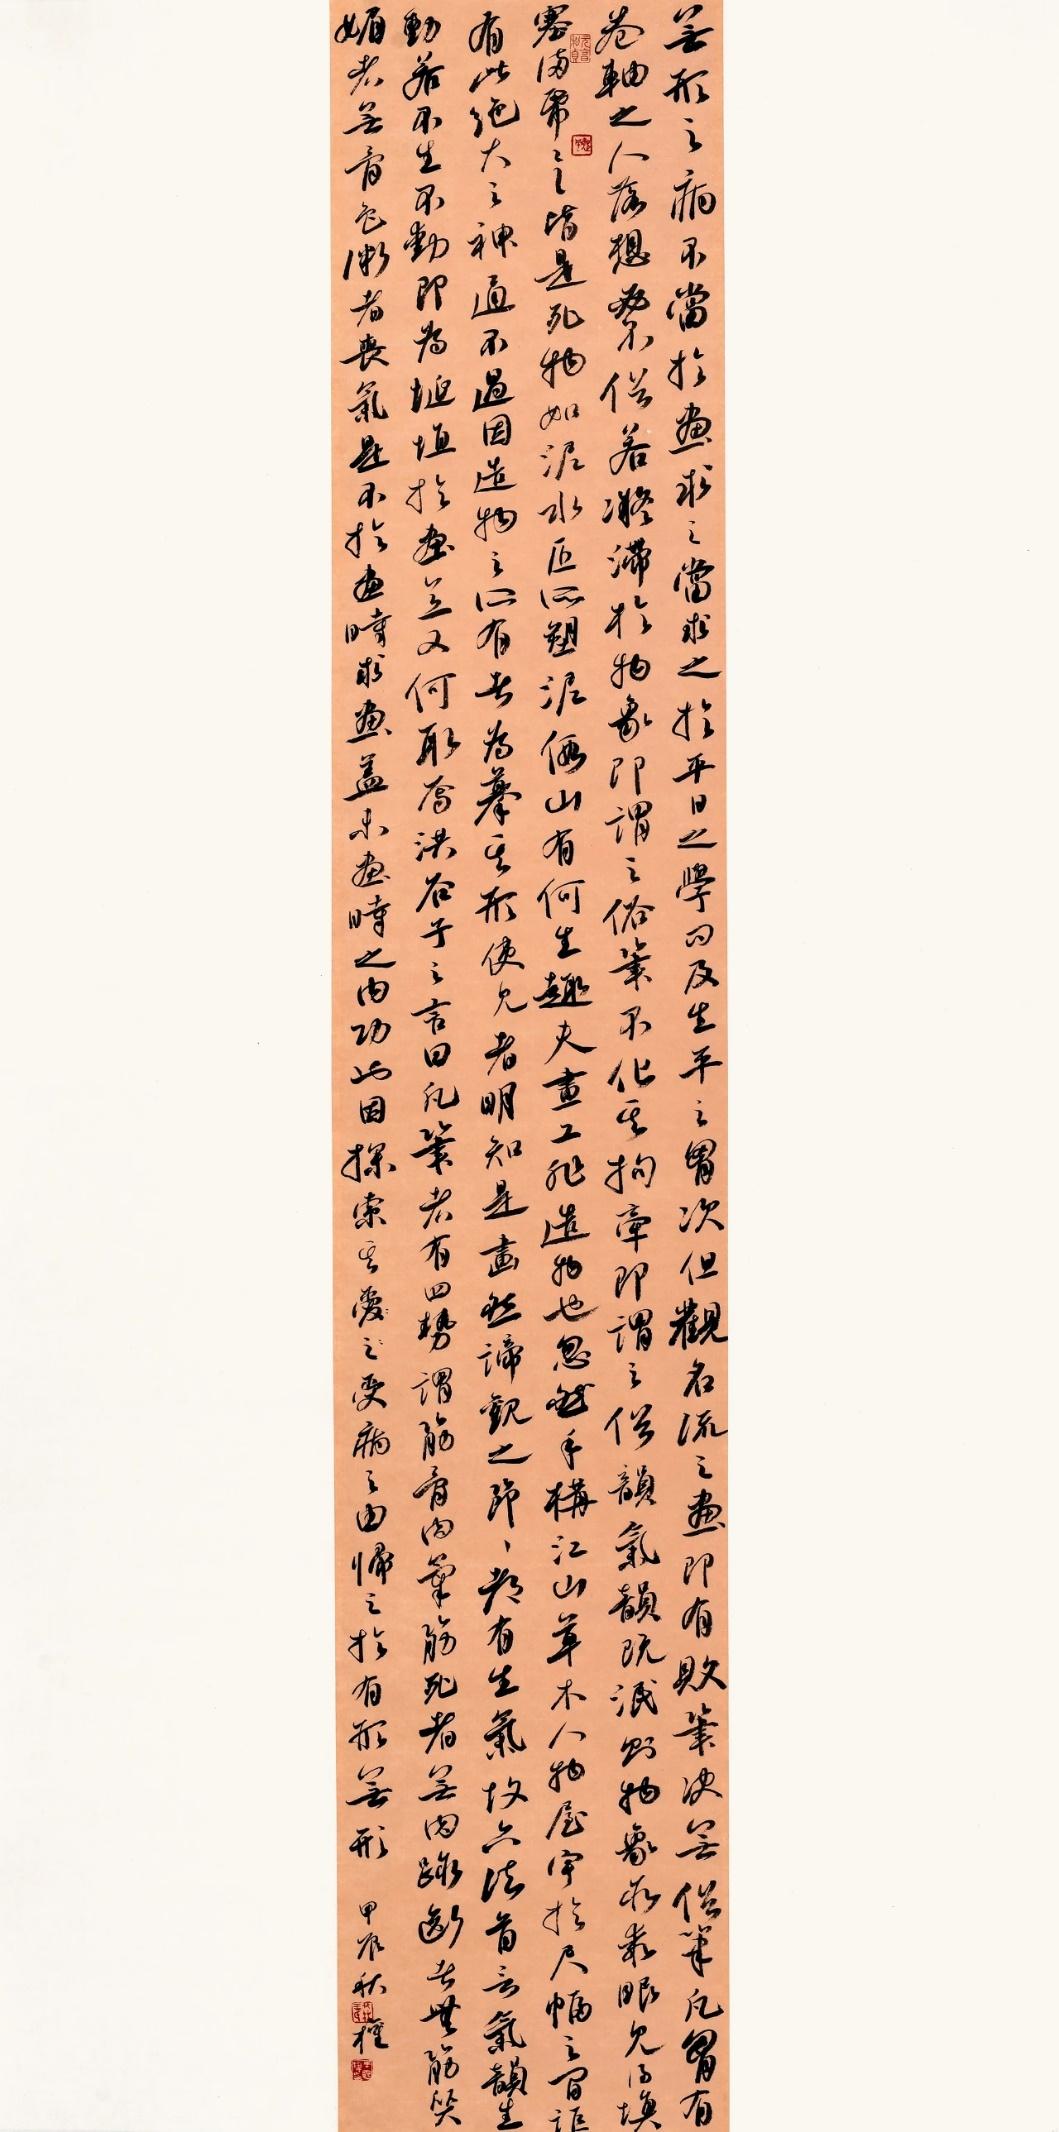 無形之病不當於畫求之當求之於平日之學問及生平之胸次但觀名流之畫即有敗筆決無俗筆凡胸有
卷軸之人落想必不俗若凝滯於物象即謂之俗筆不化其拘牽即謂之俗韻氣韻既泯則物象取載眼見為填
塞滿幅之皆是死物如泥水匠所塑泥假山有何生趣夫畫工非造物也忽然手構江山草木人物屋宇於尺幅之間詎
有此絕大之神通不過因造物之所有者為摹其形使見者明知是畫然諦觀之節節都有生氣故六法首言氣韻生
動若不生不動即為
於畫道又何取焉洪谷子之言曰凡筆者有四勢謂筋骨肉氣筋死者無肉跡斷者無筋笑
媚者無骨色微者喪氣是不於畫時求畫蓋未畫時之內功也因探索其受之受病之由歸之於有形無形
甲辰秋權